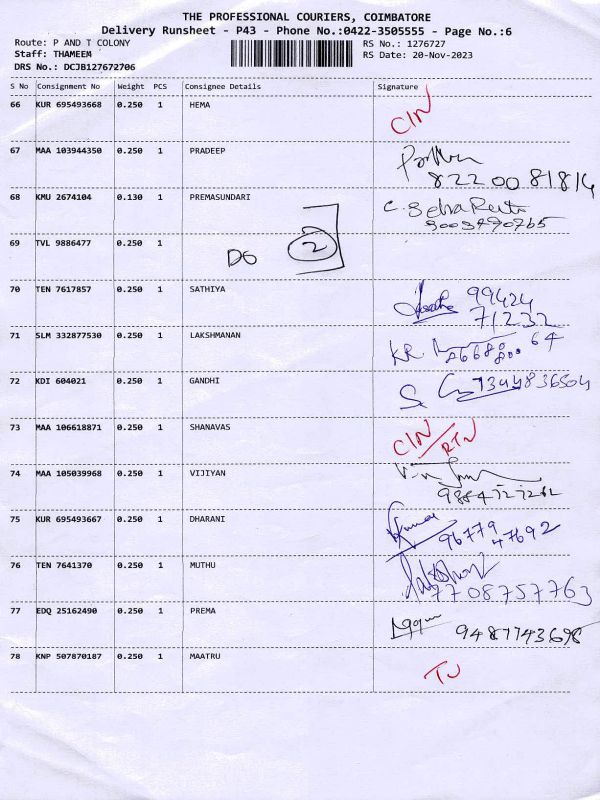 THE PROFESSIONAL COURIERS, COIMBATORE
Delivery Runsheet - P43 - Phone No.:0422-3505555 - Page No.:6
Route: P AND T COLONY RS No.: 1276727
Staff: THAMEEM RS Date: 20-Nov-2023
DRS No.: DCJB127672706
S No Consignment No Weight PCS Consignee Details Signature
66 KUR 695493668 0.250 1 HEMA
CIN
67 MAA 103944350 0.250 1 PRADEEP
8220081814
68 KMU 2674104 0.130 1 PREMASUNDARI
69 TVL 9886477 0.250 1
DG 2
70 TEN 7617857 0.250 1 SATHIYA
99424
71232
71 SLM 332877530 0.250 1 LAKSHMANAN
KR
72 KDI 604021 0.250 1 GANDHI
73 MAA 106618871 0.250 1 SHANAVAS
CIN/RTN
74 MAA 105039968 0.250 1 VIJIYAN
75 KUR 695493667 0.250 1 DHARANI
96779
47692
76 TEN 7641370 0.250 1 MUTHU
7708757763
77 EDQ 25162490 0.250 1 PREMA
9487743698
78 KNP 507870187 0.250 1 MAATRU